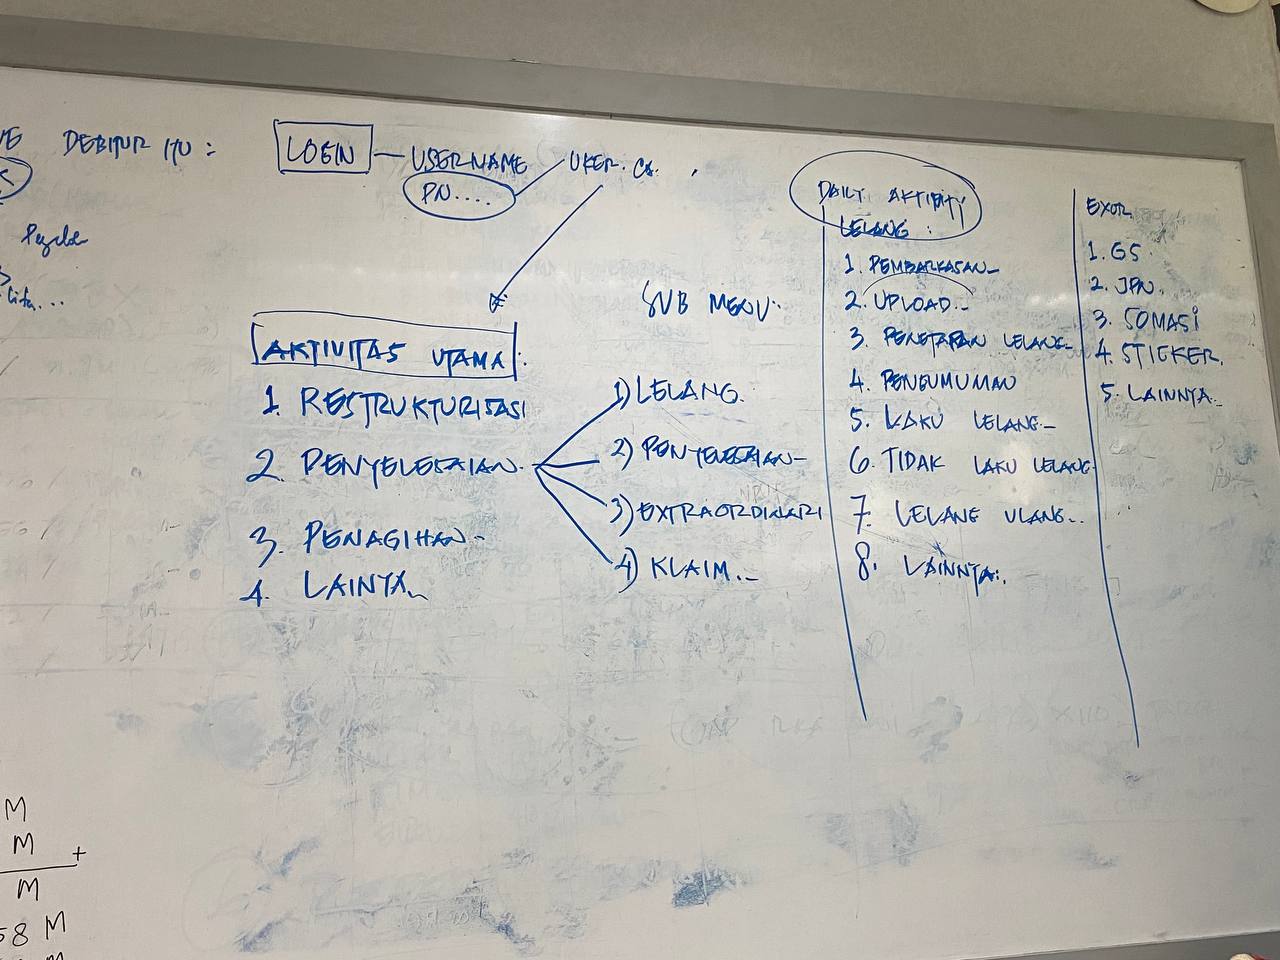 DEBITUR ITU :
LOGIN — USERNAME
PN....
UKER. CA.
AKTIVITAS UTAMA :
1. RESTRUKTURISASI
2. PENYELESAIAN.
3. PENAGIHAN-
4. LAINYA
SUB MENU:
1) LELANG.
2) PENYELESAIAN-
3) EXTRAORDINARI
4) KLAIM.-
DAILY AKTIVITY
LELANG :
1. PEMBARKASAN-
2. UPLOAD.-
3. PENETAPAN LELANG-
4. PENGUMUMAN
5. LAKU LELANG.-
6. TIDAK LAKU LELANG
7. LELANG ULANG..
8. LAINNYA:.
EXOR
1. GS.
2. JPN.
3. SOMASI
4. STICKER.
5. LAINNYA.-
M
M +
M
58 M